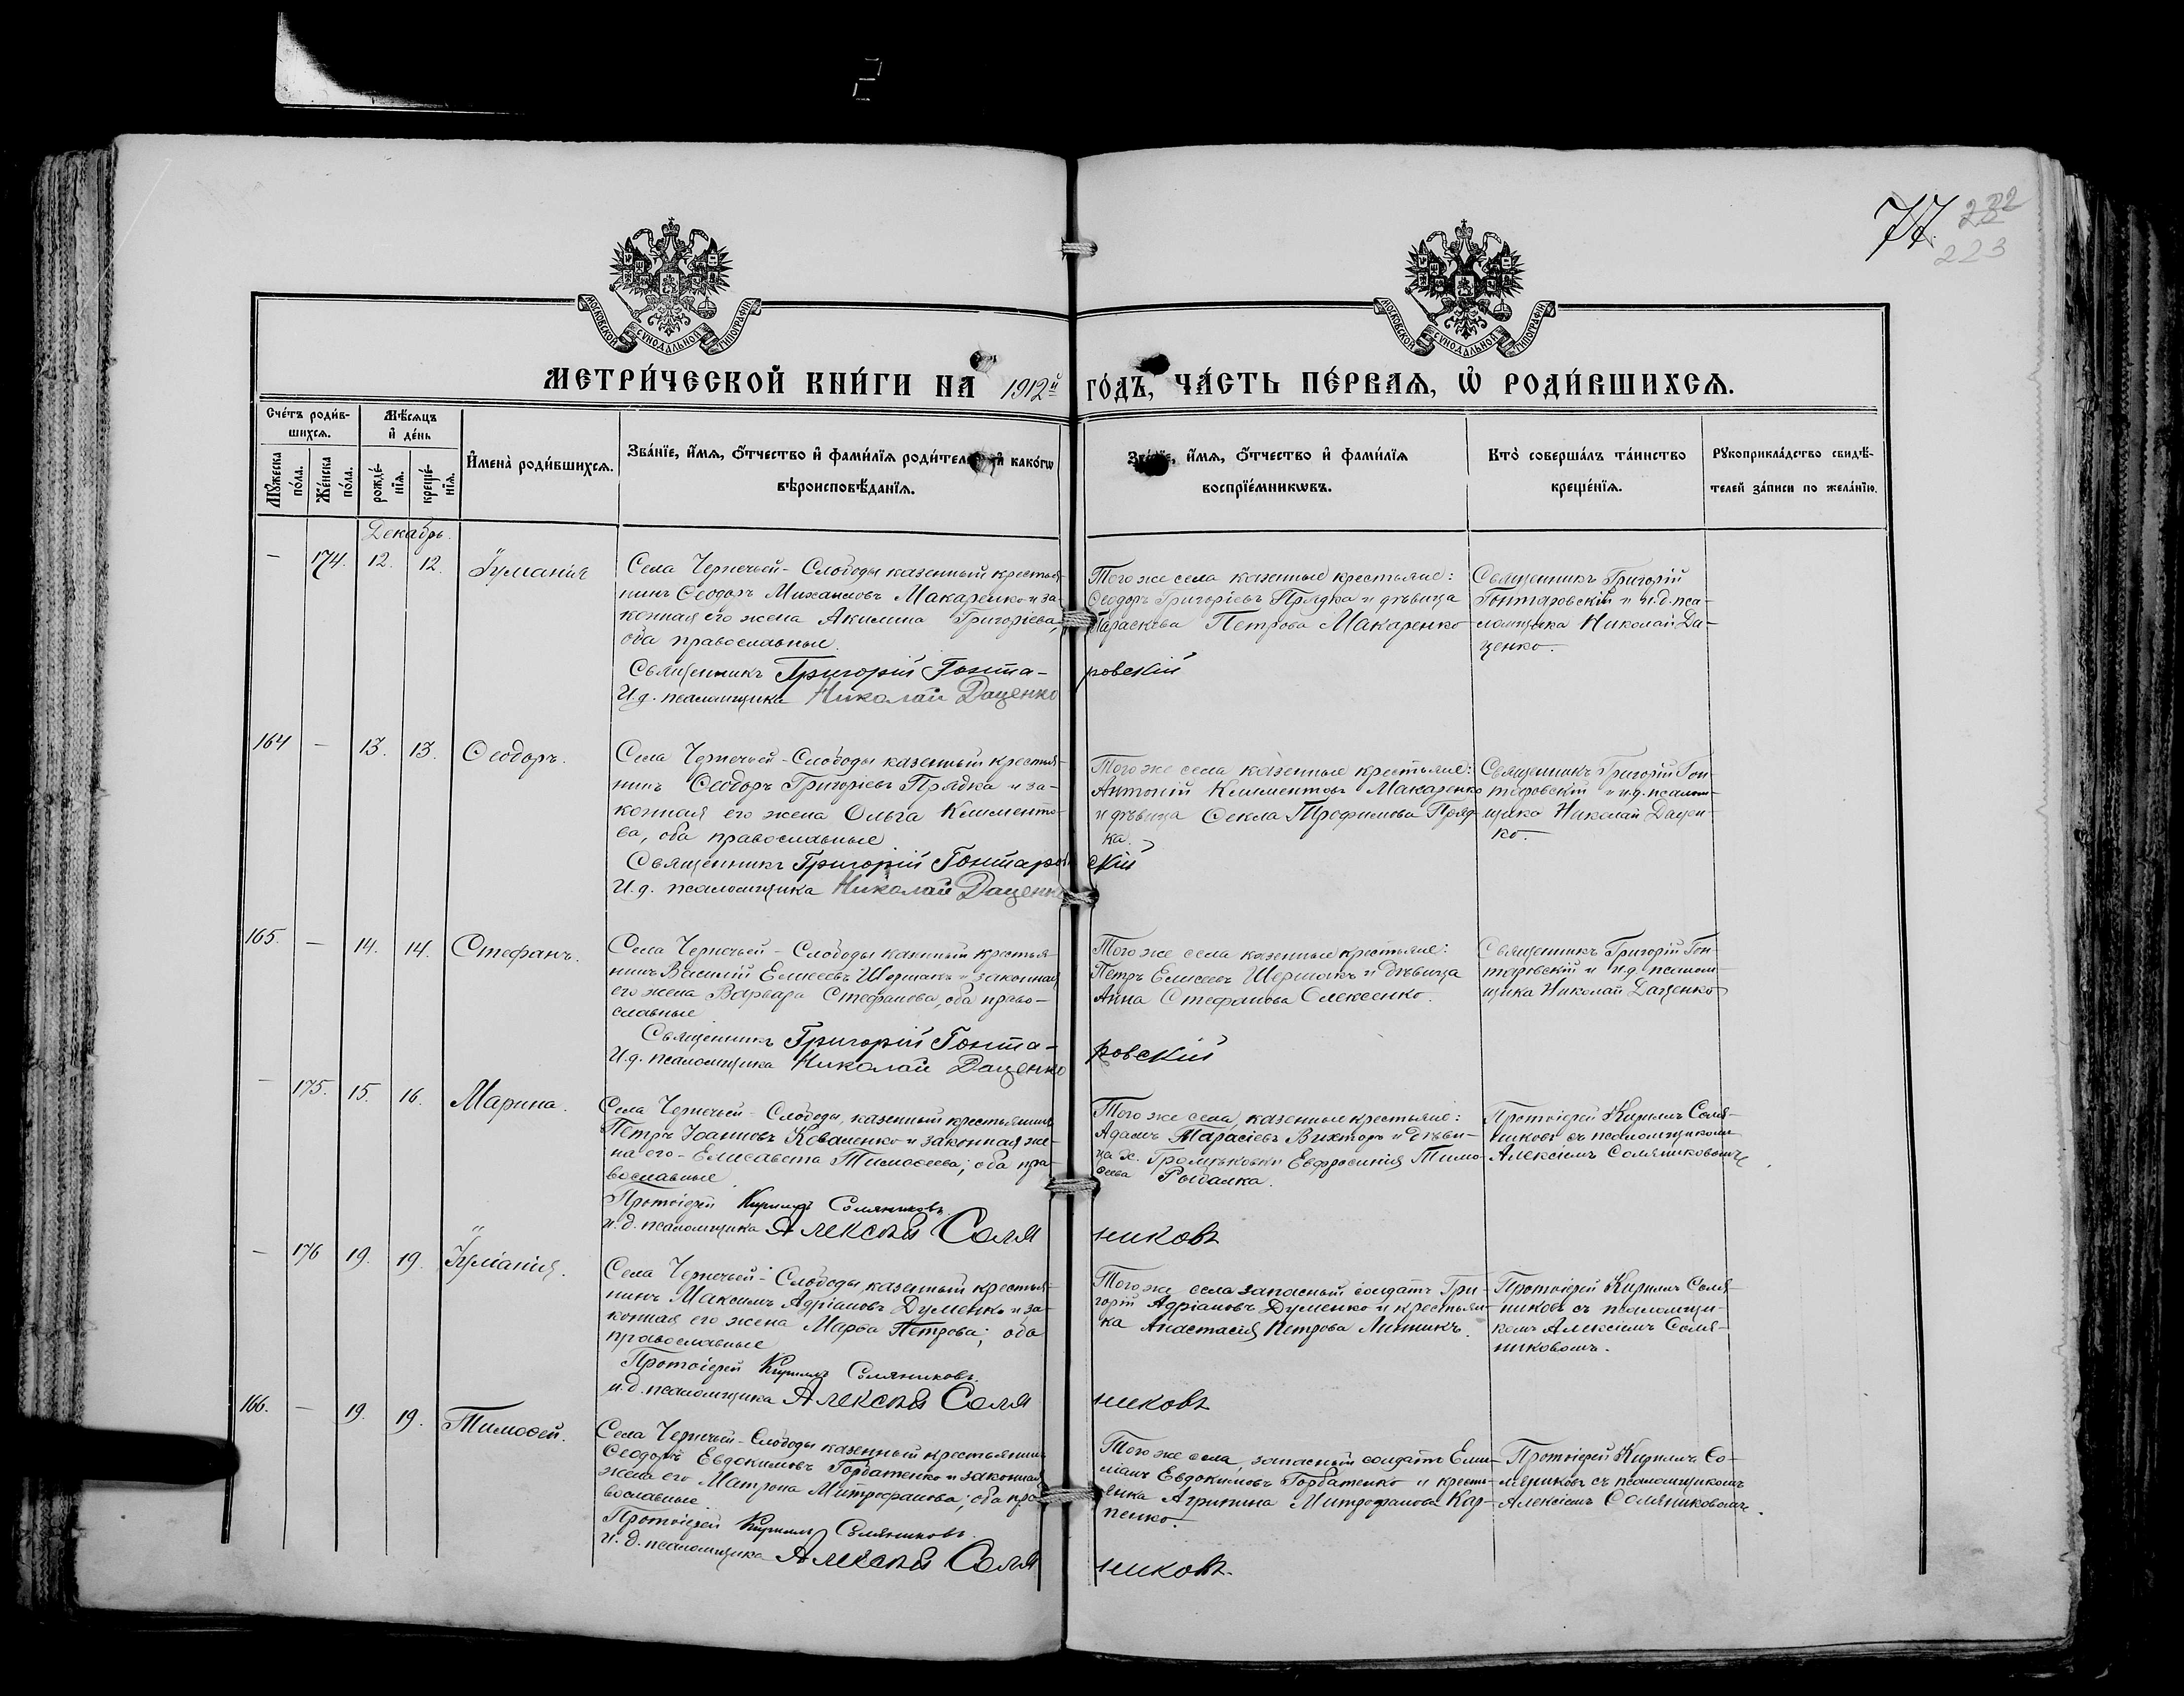 2
77.
232
223
МОСКОВСКОЙ СѴНОДАЛЬНОЙ ТИПОГРАФІИ
МОСКОВСКОЙ СѴНОДАЛЬНОЙ ТИПОГРАФІИ
МЕТРИ́ЧЕСКОЙ КНИ́ГИ НА 1912й ГО́ДЪ, ЧА́СТЬ ПЕ́РВАѦ, Ѡ҆ РОДИ́ВШИХСѦ.
Сче́тъ роди́в-
шихсѧ.
Мѣ́сѧцъ
и҆ де́нь
Мꙋ́жеска по́ла.
Же́нска по́ла.
рожде́-
нїѧ.
креще́-
нїѧ.
И҆мена̀ роди́вшихсѧ.
Зва́нїе, и҆́мѧ, ѻ҆́тчество и҆ фами́лїѧ роди́тел и҆ како́гѡ
вѣроисповѣ́данїѧ.
Зва́нїе, и҆́мѧ, ѻ҆́тчество и҆ фами́лїѧ
воспрїе́мникѡвъ.
Кто̀ соверша́лъ та́инство
креще́нїѧ.
Рꙋкоприкла́дство свидѣ́-
телей за́писи по жела́нїю.
Декабрь.
— 174. 12. 12. Іуліанія
Села Чернечьей-Слободы казенный крестья-
нинъ Ѳеодоръ Михаиловъ Макаренко и за-
конная его жена Акилина Григоріева,
оба православные.
Священникъ Григорій Гонта-
И.д. псаломщика Николай Даценко
Того же села казенные крестьяне:
Ѳеодоръ Григоріевъ Прядка и дѣвица
Параскева Петрова Макаренко
ровскій
Священникъ Григорій
Гонтаровскій и и.д. пса-
ломщика Николай Да-
ценко.
164 — 13. 13. Ѳеодоръ.
Села Чернечьей-Слободы казенный крестья-
нинъ Ѳеодоръ Григоріевъ Прядка и за-
конная его жена Ольга Климентo-
ва, оба православные
Священникъ Григорій Гонтаров
И.д. псаломщика Николай Даценко
Того же села казенные крестьяне:
Антоній Климентовъ Макаренко
и дѣвица Ѳекла Трофимова Пряд-
ка.
скій
Священникъ Григорій Гон-
таровскій и и.д. псалом-
щика Николай Дацен-
ко.
165. — 14. 14. Стефанъ.
Села Чернечьей-Слободы казенный крестья-
нинъ Василій Елисеевъ Шерстюкъ и законная
его жена Варвара Стефанова, оба право-
славные
Священникъ Григорій Гонта-
И.д. псаломщика Николай Даценко
Того же села казенные крестьяне:
Петръ Елисеевъ и дѣвица
Анна Стефанова Олексенко.
ровскій
Священникъ Григорій Гон-
таровскій и и.д. псалом-
щика Николай Даценко
— 175. 15. 16. Марина.
Села Чернечьей-Слободы, казенный крестьянинъ
Петръ Іоанновъ Коваленко и законная же-
на его-Елисавета Тимоѳеева; оба пра-
вославные
Протоіерей Кириллъ Соляниковъ.
и.д. псаломщика Алексѣй Соля
Того же села, казенные крестьяне:
Адамъ Тарасіевъ Вихторъ и дѣви-
ца х. Громцьковки Евфросинія Тимо-
ѳеева Рыбалка.
никовъ
Протоіерей Кириллъ Соля-
никовъ съ псаломщикомъ
Алексіемъ Соляниковымъ
— 176 19. 19. Іуліанія.
Села Чернечьей-Слободы, казенный крестья-
нинъ Максимъ Адріановъ Думенко и за-
конная его жена Марѳа Петрова; оба
православные
Протоіерей Кириллъ Соляниковъ.
и.д. псаломщика Алексѣй Соля
Того же села запасный солдатъ Гри-
горій Адріановъ Думенко и крестьян-
ка Анастасія Петрова Линникъ.
никовъ
Протоіерей Кириллъ Соля-
никовъ съ псаломщи-
комъ Алексіемъ Соля-
никовымъ.
166. — 19. 19. Тимоѳей.
Села Чернечьей-Слободы казенный крестьянинъ
Ѳеодоръ Евдокимовъ Горбатенко и законная
жена его Матрона Митрофанова; оба пра-
вославные
Протоіерей Кириллъ Соляниковъ.
и.д. псаломщика Алексѣй Соля
Того же села, запасный солдатъ Еми-
ліанъ Евдокимовъ Горбатенко и кресть-
янка Агрипина Митрофанова Кар-
пенко.
никовъ.
Протоіерей Кириллъ Со-
ляниковъ съ псаломщикомъ
Алексіемъ Соляниковымъ.